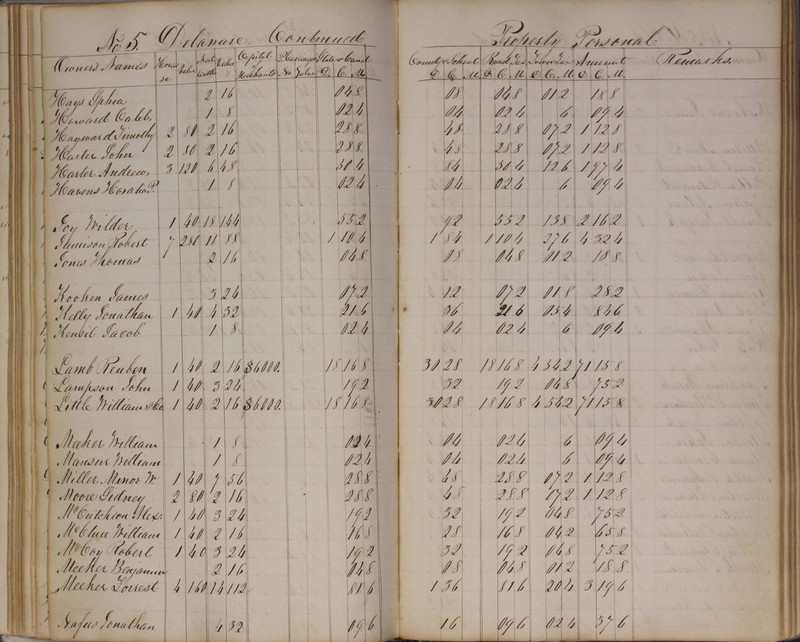 No 5. Delaware Continued Property Personal
Owners Names Horses Value Neat Cattle Value Capital Merchants Carriages No Value State & Canal D. C. M. County & School D. C. M. Road Tax D. C. M. Township D. C. M. Amount D. C. M. Remarks
Hays 2 16 048 08 048 012 188
Harward Caleb 1 8 024 04 024 6 094
Hayward Timothy 2 80 2 16 288 48 288 072 1 128
Harter John 2 80 2 16 288 48 288 072 1 128
Harter Andrew 3 120 6 48 504 84 504 126 1 974
Havens Horatio P. 1 8 024 04 024 6 094
Joy Wilder 1 40 18 144 552 92 552 138 2 162
Jamison Robert 7 280 11 88 1 104 1 84 1 104 276 4 324
Jones Thomas 2 16 048 08 048 012 188
Koohen James 3 24 072 12 072 018 282
Kelly Jonathan 1 40 4 32 216 36 216 054 846
Kensil Jacob 1 8 024 04 024 6 094
Lamb Reuben 1 40 2 16 $6000. 18 168 30 28 18 168 4 542 71 158
Lampson John 1 40 3 24 192 32 192 048 752
Little William & Co 1 40 2 16 $6000. 18 168 30 28 18 168 4 542 71 158
Meeker William 1 8 024 04 024 6 094
Manser William 1 8 024 04 024 6 094
Miller Minor W 1 40 7 56 288 48 288 072 1 128
Moore Sidney 2 80 2 16 288 48 288 072 1 128
McCutcheon Alex. 1 40 3 24 192 32 192 048 752
McClure William 1 40 2 16 168 28 168 042 658
McCoy Robert 1 40 3 24 192 32 192 048 752
Meeker Benjamin 2 16 048 08 048 012 188
Meeker Forrest 4 160 14 112 816 1 36 816 204 3 196
Nafus Jonathan 4 32 096 16 096 024 376